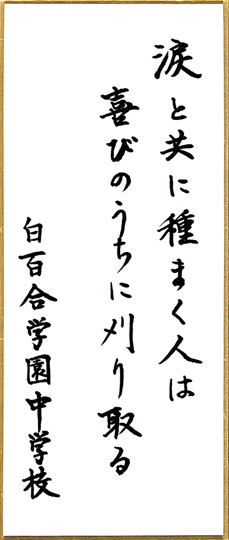 涙と共に種まく人は
喜びのうちに刈り取る
白百合学園中学校